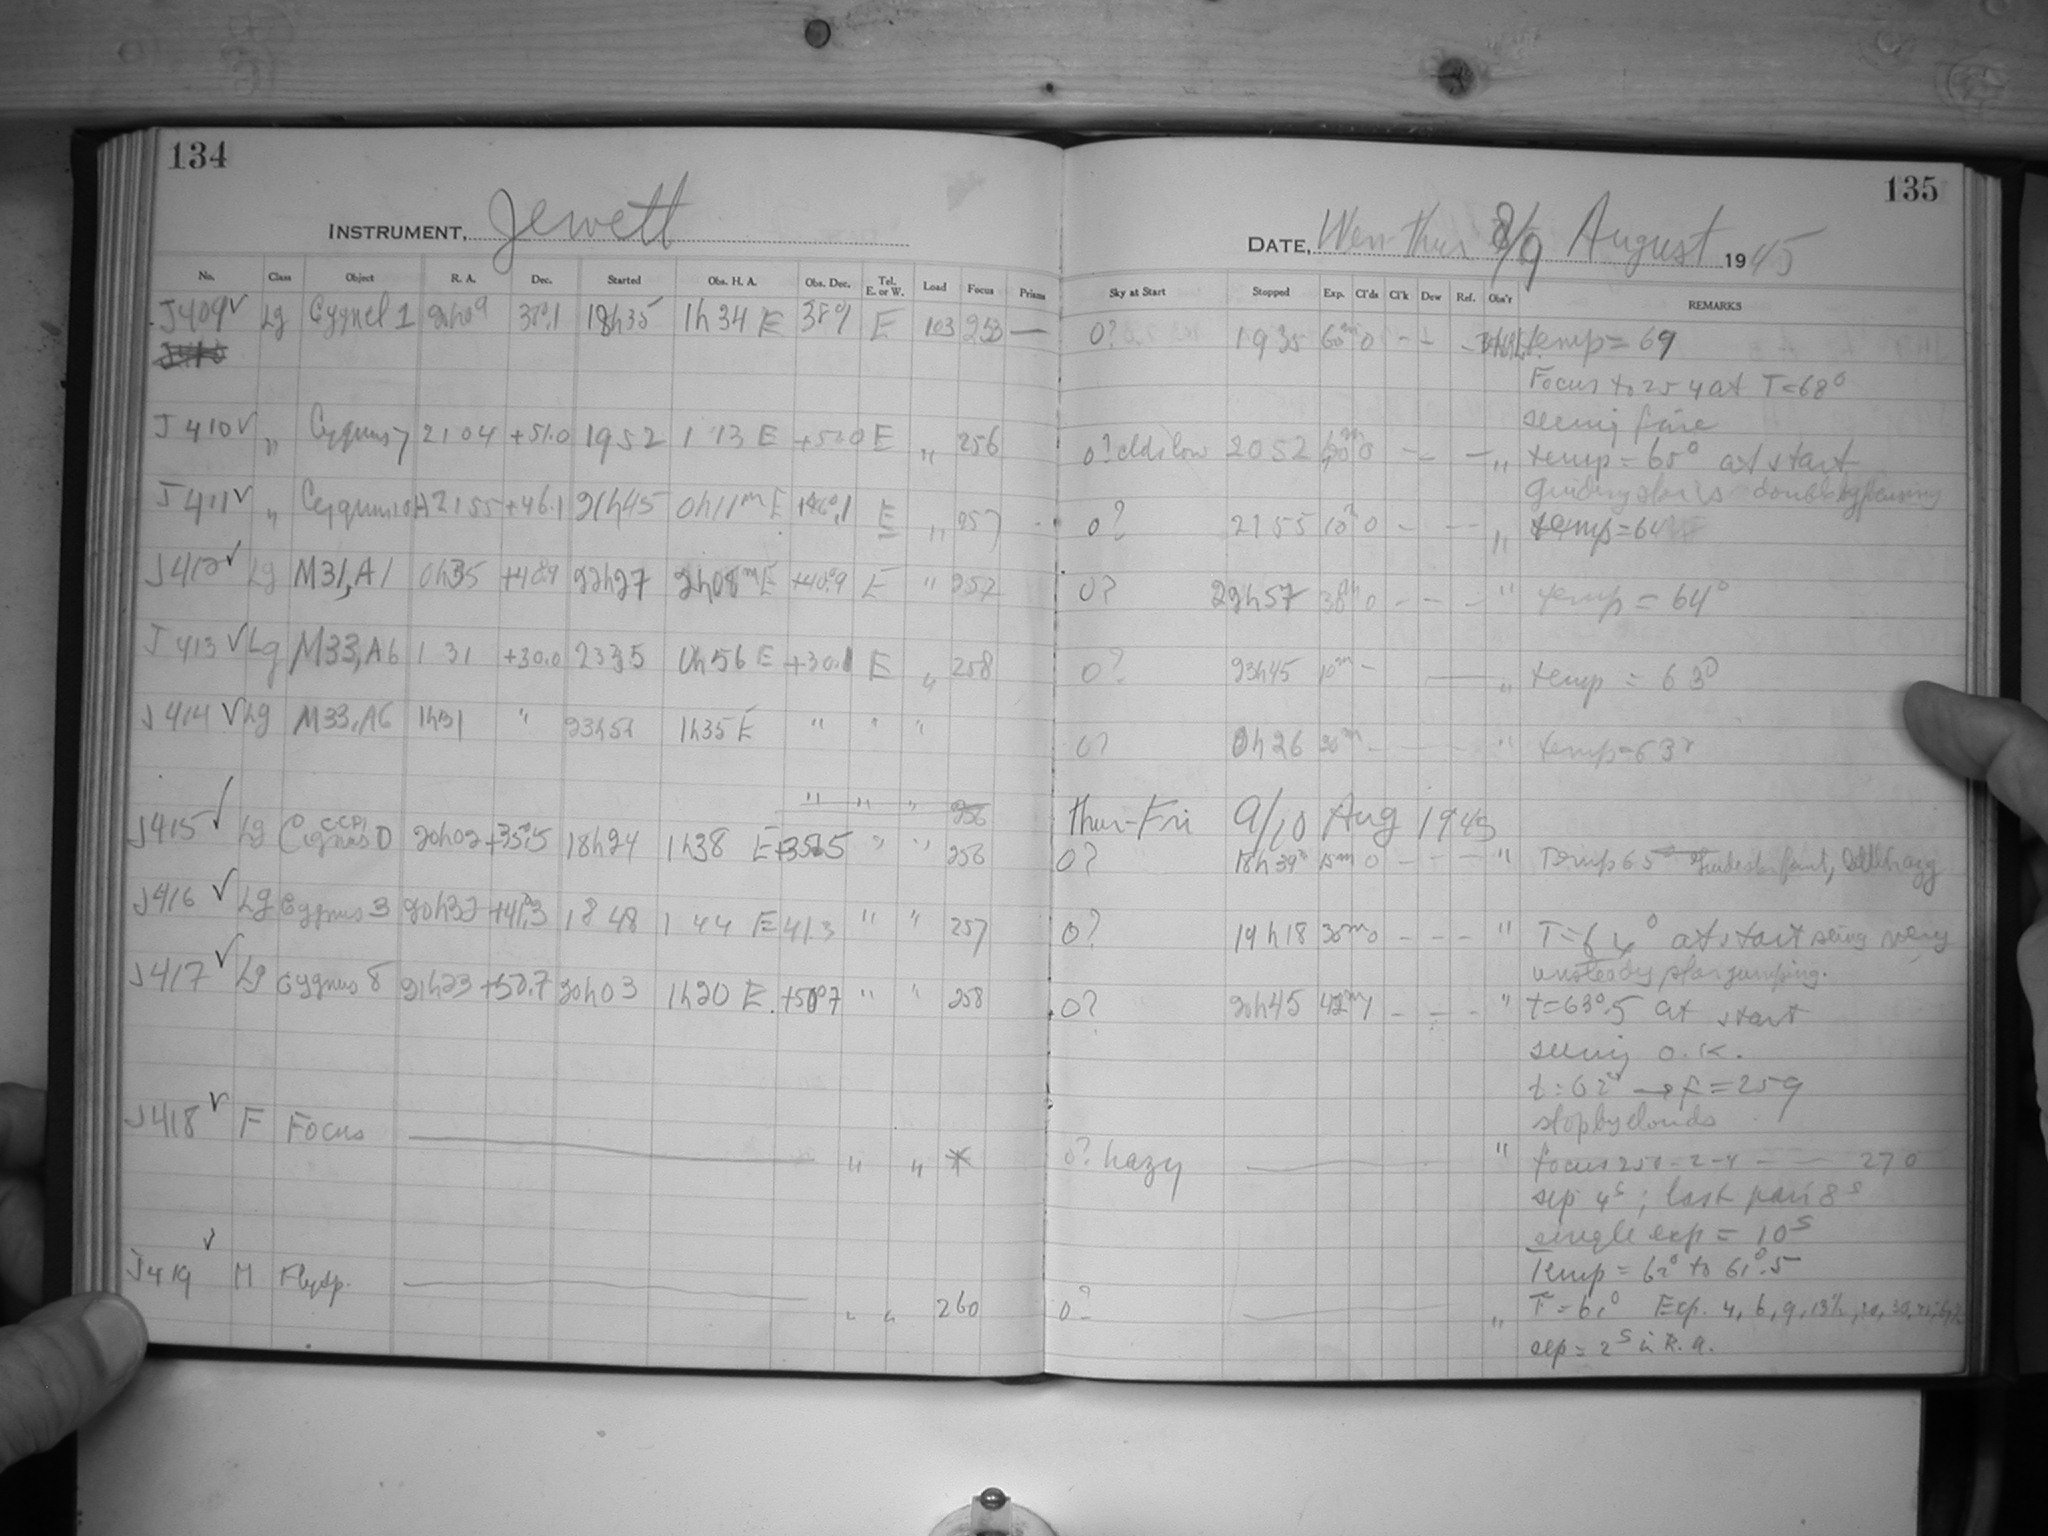 134
INSTRUMENT, Jewett
No. Class Object R. A. Dec. Started Obs. H. A. Obs. Dec. Tel. E. or W. Load Focus Prisms
J409 √ Lg 1 18h35 1h34 E E 103 253 —
J410 √ " Cygnus 7 2104 +51.0 1952 1 13 E E " 256
J411 √ " 2155 +46.1 21h45 0h11m E E " 257
J412 √ Lg M31,A1 0h35 +40.9 22h27 2h08m E +40.9 E " 257
J413 √ Lg M33,A6 1 31 +30.0 2335 0h56 E E " 258
J414 √ Lg M33,A6 1h31 " 1h35 E " " "
" " " 256
J415 √ Lg Cygnus 0 20h02 +35.5 18h24 1h38 E " " 256
J416 √ Lg Cygnus 3 20h32 +41.3 18 48 1 44 E 41.3 " " 257
J417 √ Lg Cygnus 8 21h23 +50.7 20h03 1h20 E +50.7 " " 258
J418 √ F Focus — " " *
J419 √ M — " " 260
135
DATE, Wen-Thur 8/9 August 1945
Sky at Start Stopped Exp. Cl'ds Cl'k Dew Ref. Obs'r REMARKS
0? 1935 60m 0 - - - temp = 69
Focus to 254 at T=68°
seeing fair
0? clds low 2052 60m 0 - - - " temp = 65° at start
0? 2155 10m 0 - - - " temp = 64
0? 22h57 30m 0 - - - " temp = 64°
0? 23h45 10m - — " temp = 63°
0? 0h26 30m - - - - " temp = 63°
Thur-Fri 9/10 Aug 1945
0? 18h39 15m 0 - - - " Temp 65°
0? 19h18 30m 0 - - - " T=64° at start seeing very
unsteady star jumping.
0? 20h45 42m - - - " t=63°.5 at start
seeing O.K.
t=62° → f=259
stop by clouds
0? hazy — " focus 250-2-4 — 270
sep 4s; last pair 8s
single exp = 10s
Temp = 62° to 61°.5
0? — " T=61° Exp. 4, 6, 9, 13½, 20, 30,
sep = 2s in R.A.